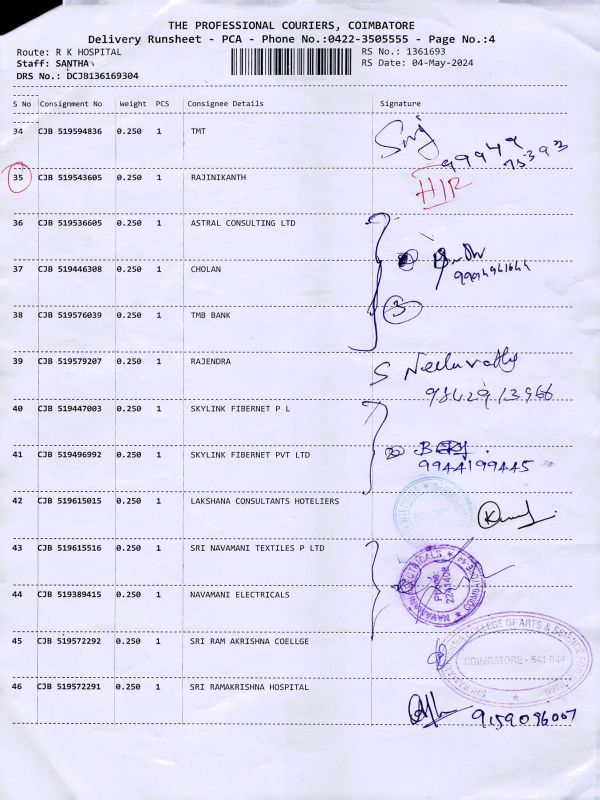 THE PROFESSIONAL COURIERS, COIMBATORE
Delivery Runsheet - PCA - Phone No.:0422-3505555 - Page No.:4
Route: R K HOSPITAL
RS No.: 1361693
Staff: SANTHA
RS Date: 04-May-2024
DRS No.: DCJ8136169304
S No Consignment No Weight PCS Consignee Details Signature
34 CJB 519594836 0.250 1 TMT
35 CJB 519543605 0.250 1 RAJINIKANTH
36 CJB 519536605 0.250 1 ASTRAL CONSULTING LTD
37 CJB 519446308 0.250 1 CHOLAN
38 CJB 519576039 0.250 1 TMB BANK
3
39 CJB 519579207 0.250 1 RAJENDRA
40 CJB 519447003 0.250 1 SKYLINK FIBERNET P L
41 CJB 519496992 0.250 1 SKYLINK FIBERNET PVT LTD
9944199445
42 CJB 519615015 0.250 1 LAKSHANA CONSULTANTS HOTELIERS
43 CJB 519615516 0.250 1 SRI NAVAMANI TEXTILES P LTD
44 CJB 519389415 0.250 1 NAVAMANI ELECTRICALS
45 CJB 519572292 0.250 1 SRI RAM AKRISHNA COELLGE
COIMBATORE - 641 044
46 CJB 519572291 0.250 1 SRI RAMAKRISHNA HOSPITAL
9159096007